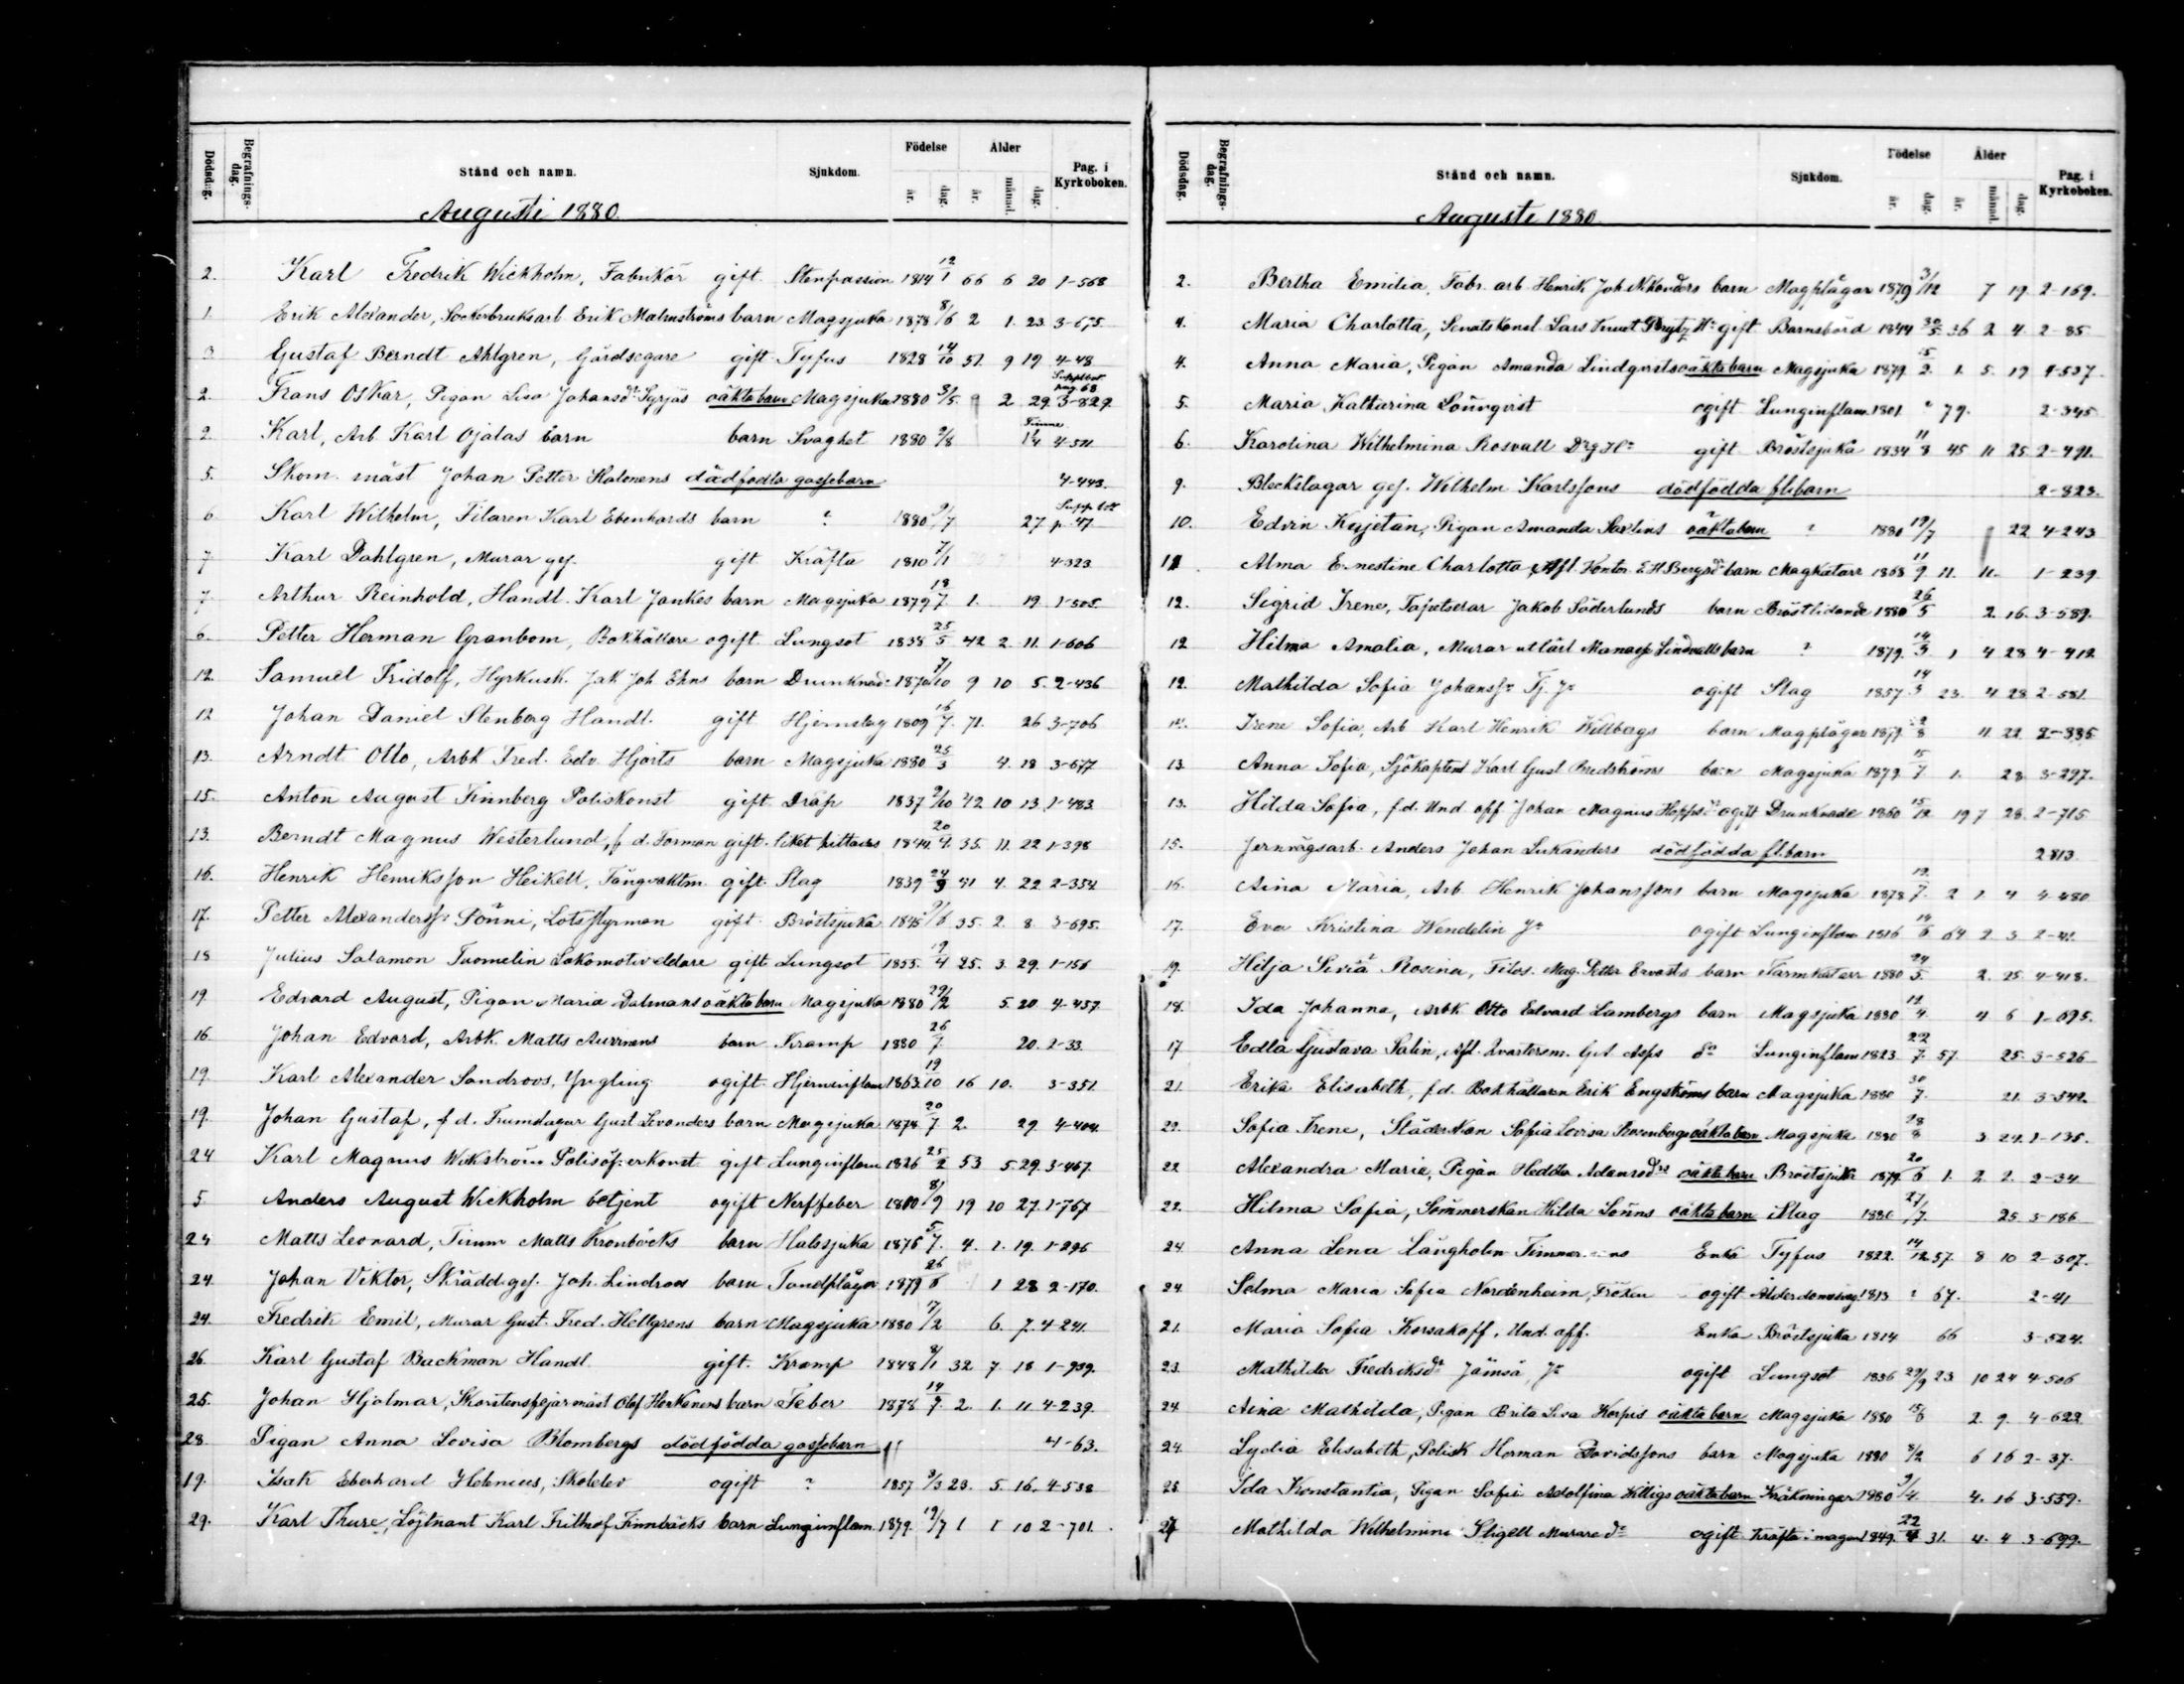 Dödsdag. Begrafnings-dag. Stånd och namn. Sjukdom. Födelse år. dag. Ålder år. månad. dag. Pag. i Kyrkoboken.
Augusti 1880
2. Karl Fredrik Wickholm, Fabrikör gift Stenpassion 1814 12/1 66 6 20 1-568
1. Erik Alexander, Sockerbruksarb Erik Malmströms barn Magsjuka 1878 8/6 2 1. 23 3-675
3 Gustaf Berndt Ahlgren, Gårdsegare gift Tyfus 1828 14/10 51. 9 19 4-48
2. Frans Oskar, Pigan Lisa Johansdr Syrjäs oäkta barn Magsjuka 1880 3/5. 2 29. Supplbot pag 68 3-829
2. Karl, Arb Karl Ojalas barn barn Svaghet 1880 2/8 Timme 14 4-511
5. Skom. mäst Johan Petter Halonens dödfödta gossebarn 4-443.
6 Karl Wilhelm, Filaren Karl Ebenhards barn ? 1880 9/7 27 Supp bot p. 47
7 Karl Dahlgren, Murar ges. gift Kräfta 1810 7/1 4-323
7. Arthur Reinhold, Handl. Karl Jankes barn Magsjuka 1879 18/7 1. 19 1-505
6. Petter Herman Granbom, Bokhållare ogift Lungsot 1838 25/5 42 2. 11. 1-606
12. Samuel Fridolf, Hyrkusk. Jak Joh Ehns barn Drunknad 1870 7/10 9 10 5. 2-436
12 Johan Daniel Stenberg Handl. gift Hjernslag 1809 16/7. 71. 26 3-706
13. Arndt Otto, Arbk Fred. Edv. Hjorts barn Magsjuka 1880 25/3 4. 18 3-677
15. Anton August Finnberg Poliskonst gift Dråp 1837 2/10 42 10 13 1-483
13. Berndt Magnus Westerlund, f d. Forman gift. liket hittades 1844. 20/9. 35. 11. 22 1-398
16. Henrik Henriksson Heikell, Fångvaktm. gift Slag 1839 24/3 41 4. 22 2-354
17. Petter Alexanderss. Pönni, Lotsstyrman gift Bröstsjuka 1845 9/6 35. 2. 8 3-695.
18 Julius Salamon Tuomelin Lokomotiveldare gift Lungsot 1855. 19/4 25. 3. 29. 1-156
19. Edvard August, Pigan Maria Dalmans oäkta barn Magsjuka 1880 29/2 5. 20 4-457
16 Johan Edvard, Arbk. Matts Aurinens barn Kramp 1880 26/7. 20. 2-33.
19. Karl Alexander Sandroos, Yngling ogift Hjerninflam 1863. 19/10 16 10. 3-351.
19. Johan Gustaf, f d. Trumslagar Gust Levanders barn Magsjuka 1878 20/7 2. 29 4-404.
24 Karl Magnus Wikström Polisöf.erkonst gift Lunginflam 1826 25/2 53 5. 29. 3-467.
5. Anders August Wickholm betjent ogift Nerffeber 1860. 8/9 19 10 27. 1-767
24 Matts Leonard, Timm Matts Kronbäcks barn Halssjuka 1876 5/7. 4. 1. 19. 1-296
24. Johan Viktor, Skrädd. ges. Joh. Lindroos barn Tandplågor 1879 26/6 1 28 2-170.
24. Fredrik Emil, Murar Gust. Fred. Hellgrens barn Magsjuka 1880 17/2 6. 7. 4-241.
26. Karl Gustaf Backman Handl. gift. Kramp 1848 8/1 32 7 18 1-939.
25. Johan Hjalmar, Skorstensfejarmäst Olof Herkonens barn Feber 1878 14/7. 2. 1. 11. 4-239.
28. Pigan Anna Lovisa Blombergs dödfödda gossebarn 4-63.
19. Isak Eberhard Helenius, Skolelev ogift ? 1857 3/3 23. 5. 16. 4-538
29. Karl Thure, Löjtnant Karl Frithiof Finnbäcks barn Lunginflam. 1879. 19/7 1 1 10 2-701.
Dödsdag. Begrafnings-dag. Stånd och namn. Sjukdom. Födelse år. dag. Ålder år. månad. dag. Pag. i Kyrkoboken.
Augusti 1880
2. Bertha Emilia, Fabr. arb. Henrik Joh Nikanders barn Magplågor 1879 3/12 7 19. 2-169.
4. Maria Charlotta, Senatskansl. Lars Hu gift Barnsbörd 1844 30/5 36 2 4. 2-85
4. Anna Maria, Pigan Amanda Lindqvists oäkta barn Magsjuka 1879. 15/2. 1. 5. 19 4-537
5. Maria Katharina Lönnqvist ogift Lunginflam. 1801. ? 79. 2-345
6. Karolina Wilhelmina Rosvall Drg Hu gift Bröstsjuka 1834 11/8 45 11 25. 2-491.
9. Bleckslagar ges. Wilhelm Karlssons dödfödda fl.barn 2-823.
10. Edvin Kajetan, Pigan Amanda Saxlins oäkta barn ? 1880 19/7 22 4-243
11. Alma Ernestine Charlotta, Afl. Kontor. E H Bergs barn Magkatarr 1868 11/9. 11. 11. 1-239
12. Sigrid Irene, Tapetserar Jakob Söderlunds barn Bröstlidande 1880 26/5 2. 16. 3-589.
12 Hilma Amalia, Murar utlärl Manasse Lindvalls barn ? 1879. 14/3. 1 4 28 4-412
12. Mathilda Sofia Johanss. Tj. Ja ogift Slag 1857. 14/3 23. 4 28 2-581.
12. Irene Sofia, Arb Karl Henrik Willbergs barn Magplågor 1879 2/8 11. 22 2-335
13. Anna Sofia, Sjökaptens Karl Gust Bredströms barn Magsjuka 1879. 15/7 1. 28 3-297.
13. Hilda Sofia, f.d. Und. off. Johan Magnus Hopps dr ogift Drunknade 1860 15/12. 19 7 28. 2-715
15. Jernvägsarb. Anders Johan Lukanders dödfödda fl.barn 2-813
16. Aina Maria, Arb. Henrik Johanssons barn Magsjuka 1878 12/7. 2 1. 4 4-480
17. Eva Kristina Wendelin Ja ogift Lunginflam 1816 14/6 64 2. 3 2-41.
19. Hilja Siviä Rosina, Filos. Mag. Petter Ervasts barn Tarmkatarr 1880 24/5. 2. 25. 4-418.
18. Ida Johanna, Arbk Otto Edvard Lambergs barn Magsjuka 1880 12/4. 4 6 1-695.
17 Edla Gustava Salin, Afl. Qvarterm. G.A. Asps da Lunginflam 1823. 22/7. 57. 25. 3-526
21. Erika Elisabeth, f.d. Bokhållaren Erik Engströms barn Magsjuka 1880 30/7. 21. 3-342.
22. Sofia Irene, Städerskan Sofia Lovisa oäkta barn Magsjuka 1880 28/4 3 24. 1-135.
22 Alexandra Maria, Pigan Hedda Adamsdrs oäkta barn Bröstsjuka 1879 20/6 1. 2 2. 2-34
22. Hilma Sofia, Sömmerskan Hilda Lönns oäkta barn Slag 1880 27/7. 25. 3-186
24. Anna Lena Långholm Timmer. Enka Tyfus 1822. 14/12 57. 8 10 2-307.
24. Selma Maria Sofia Nordenheim, Fröken ogift Ålderdomssvag. 1813 ? 67. 2-41
21. Maria Sofia Korsakoff, Und. off. Enka Bröstsjuka 1814 66 3-524.
23. Mathilda Fredriksdr Jämsä, Ja ogift Lungsot 1856 29/9 23 10 24 4-506
24. Aina Mathilda, Pigan Brita Lisa Korpis oäkta barn Magsjuka 1880 15/6 2. 9. 4-622
24. Lydia Elisabeth, Polisk Herman Davidssons barn Magsjuka 1880 8/2 6 16 2-37.
25. Ida Konstantia, Pigan Sofie Adolfina Willigs oäkta barn Kräkningar 1880 9/4 4. 16 3-559.
27 Mathilda Wilhelmina Stigell Murare dr ogift Kräfta i magen 1849. 22/4 31. 4. 4 3-699.